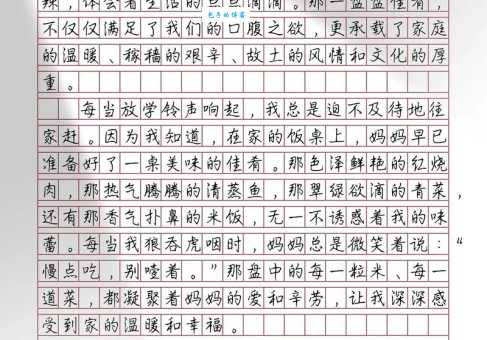 辣，体会着生活的点点滴滴。那一盘盘佳肴，
不仅仅满足了我们的口腹之欲，更承载了家庭
的温暖、稼穑的艰辛、故土的风情和文化的厚
重。
每当放学铃声响起，我总是迫不及待地往
家赶。因为我知道，在家的饭桌上，妈妈早已
准备好了一桌美味的佳肴。那色泽鲜艳的红烧
肉，那热气腾腾的清蒸鱼，那翠绿欲滴的青菜，
还有那香气扑鼻的米饭，无一不诱惑着我的味
蕾。每当我狼吞虎咽时，妈妈总是微笑着说：“
慢点吃，别噎着。”那盘中的每一粒米、每一
道菜，都凝聚着妈妈的爱和辛劳，让我深深感
受到家的温暖和幸福。